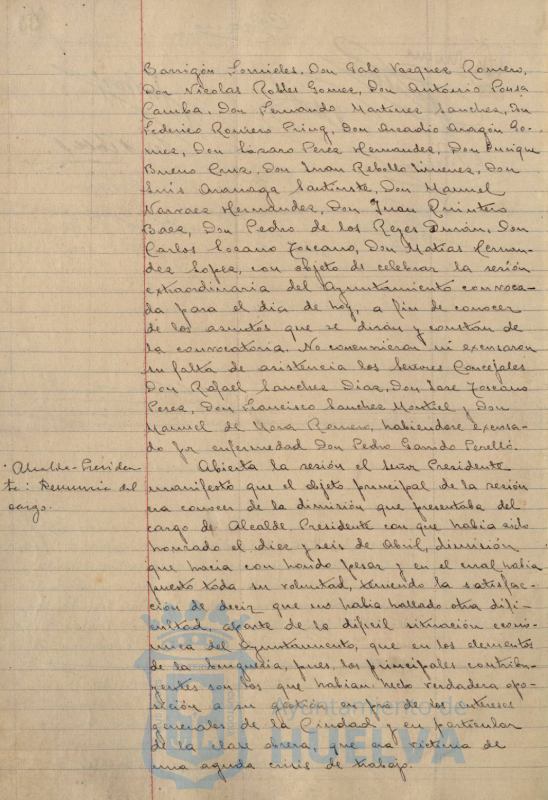 Barrigón Fornieles, Don Galo Vazquez Romero,
Don Nicolas Robles Gomez, Don Antonio Ponsa
Camba, Don Fernando Martinez Sanchez, Don
Federico Romero Pring, Don Arcadio Aragón Go-
mez, Don Lazaro Perez Hernandez, Don Enrique
Bueno Cruz, Don Juan Rebollo Jimenez, Don
Luis Aranaga Santiuste, Don Manuel
Narvaez Hernandez, Don Juan Quintero
Baez, Don Pedro de los Reyes Durán, Don
Carlos Lozano Toscano, Don Matias Hernan-
dez Lopez, con objeto de celebrar la sesión
extraordinaria del Ayuntamiento convoca-
da para el dia de hoy, a fin de conocer
de los asuntos que se dirán y constan de
la convocatoria. No concurrieron ni excusaron
su falta de asistencia los Señores Concejales
Don Rafael Sanchez Diaz, Don Jose Toscano
Perez, Don Francisco Sanchez Montiel y Don
Manuel de Mora Romero, habiendose excusa-
do por enfermedad Don Pedro Garrido Perelló.
Alcalde-Presiden-
te: Renuncia del
cargo.
Abierta la sesión el Señor Presidente
manifestó que el objeto principal de la sesión
era conocer de la dimisión que presentaba del
cargo de Alcalde Presidente con que habia sido
honrado el diez y seis de Abril, dimisión
que hacia con hondo pesar y en el cual habia
puesto toda su voluntad, teniendo la satisfac-
ción de decir que no habia hallado otra difi-
cultad, aparte de la dificil situación econó-
mica del Ayuntamiento, que en los elementos
de la burguesia, pues, los principales contribu-
yentes son los que habian hecho verdadera opo-
sición a su gestión en pro de los intereses
generales de la Ciudad y en particular
de la clase obrera, que era victima de
una aguda crisis de trabajo.
Ayuntamiento de
HUELVA